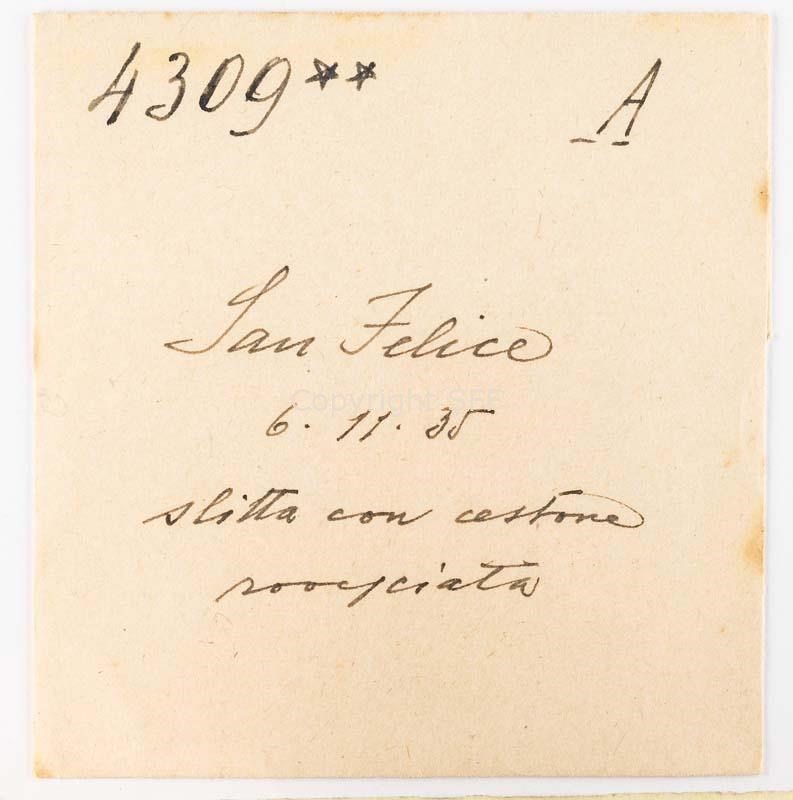 4309** A
San Felice
6. 11. 35
slitta con cestone
rovesciata